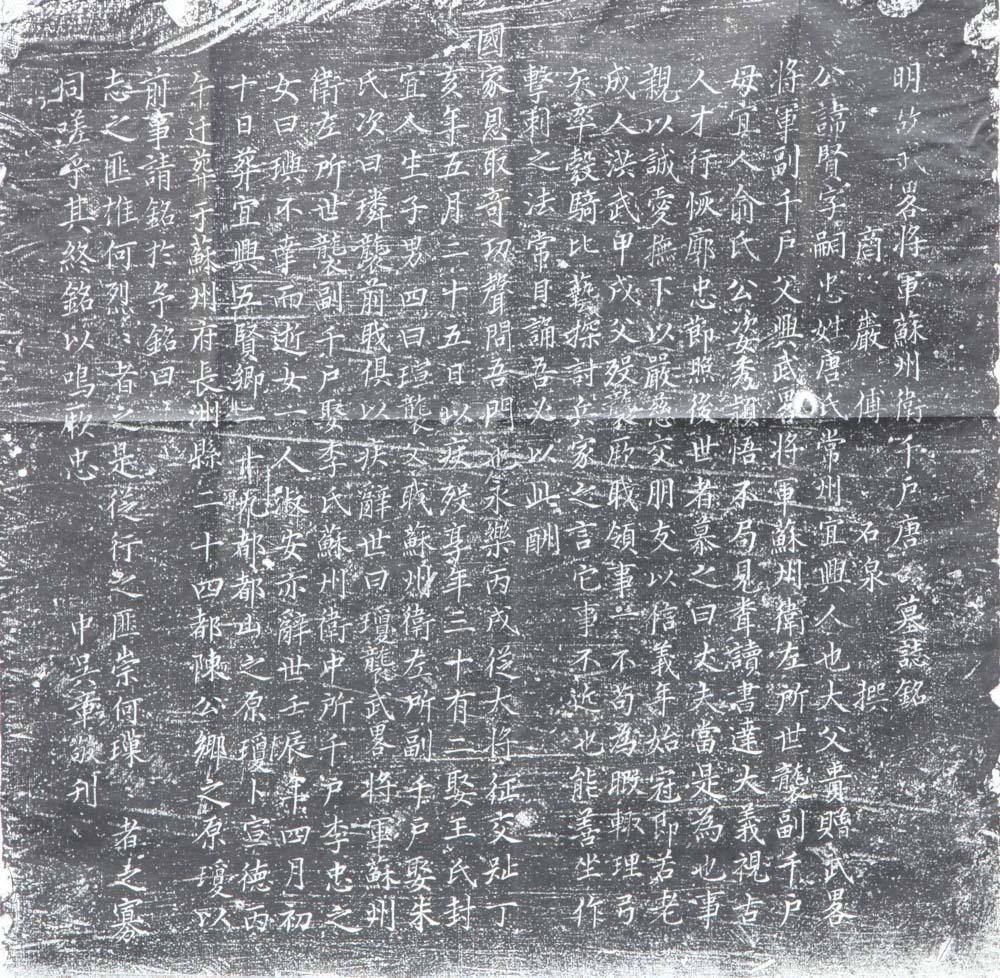 明故武畧將軍蘇州衛千戶唐公墓誌銘
商巖傅石泉撰
公諱賢字嗣忠姓唐氏常州宜興人也大父貴贈武畧
將軍副千戶父興武畧將軍蘇州衛左所世襲副千戶
母宜人俞氏公姿秀穎悟不局見聋讀書達大義視古
人才行恢廓忠節照後世者慕之曰大夫當是為也事
親以誠愛撫下以嚴慈交朋友以信義年始冠即若老
成人洪武甲戌父歿襲厥職領事一不苟為暇輙理弓
矢率彀騎比藝探討兵家之言它事不近也能善坐作
擊刺之法常自誦吾必以此酬
國家恩取奇功聲問吾門也永樂丙戌從大將征交趾丁
亥年五月二十五日以疾歿享年三十有二娶王氏封
宜人生子男四曰瑄襲父職蘇州衛左所副千戶娶朱
氏次曰璘襲前戢俱以疾辭世曰瓊襲武畧將軍蘇州
衛左所世襲副千戶娶李氏蘇州衛中所千戶李忠之
女曰璵不幸而逝女一人淑安亦辭世壬辰年四月初
十日葬宜興五賢鄉二十九都都山之原瓊卜宣德丙
午迁葬于蘇州府長洲縣二十四都陳公鄉之原瓊以
前事請銘於予銘曰
志之匪惟何烈烈者之是從行之匪崇何璞璞者之寡
同嗟乎其終銘以鳴厥忠
中吳章敬刊